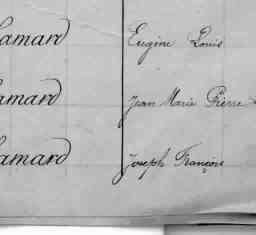 Lamard Eugène Louis
Lamard Jean Marie Pierre
Lamard Joseph François